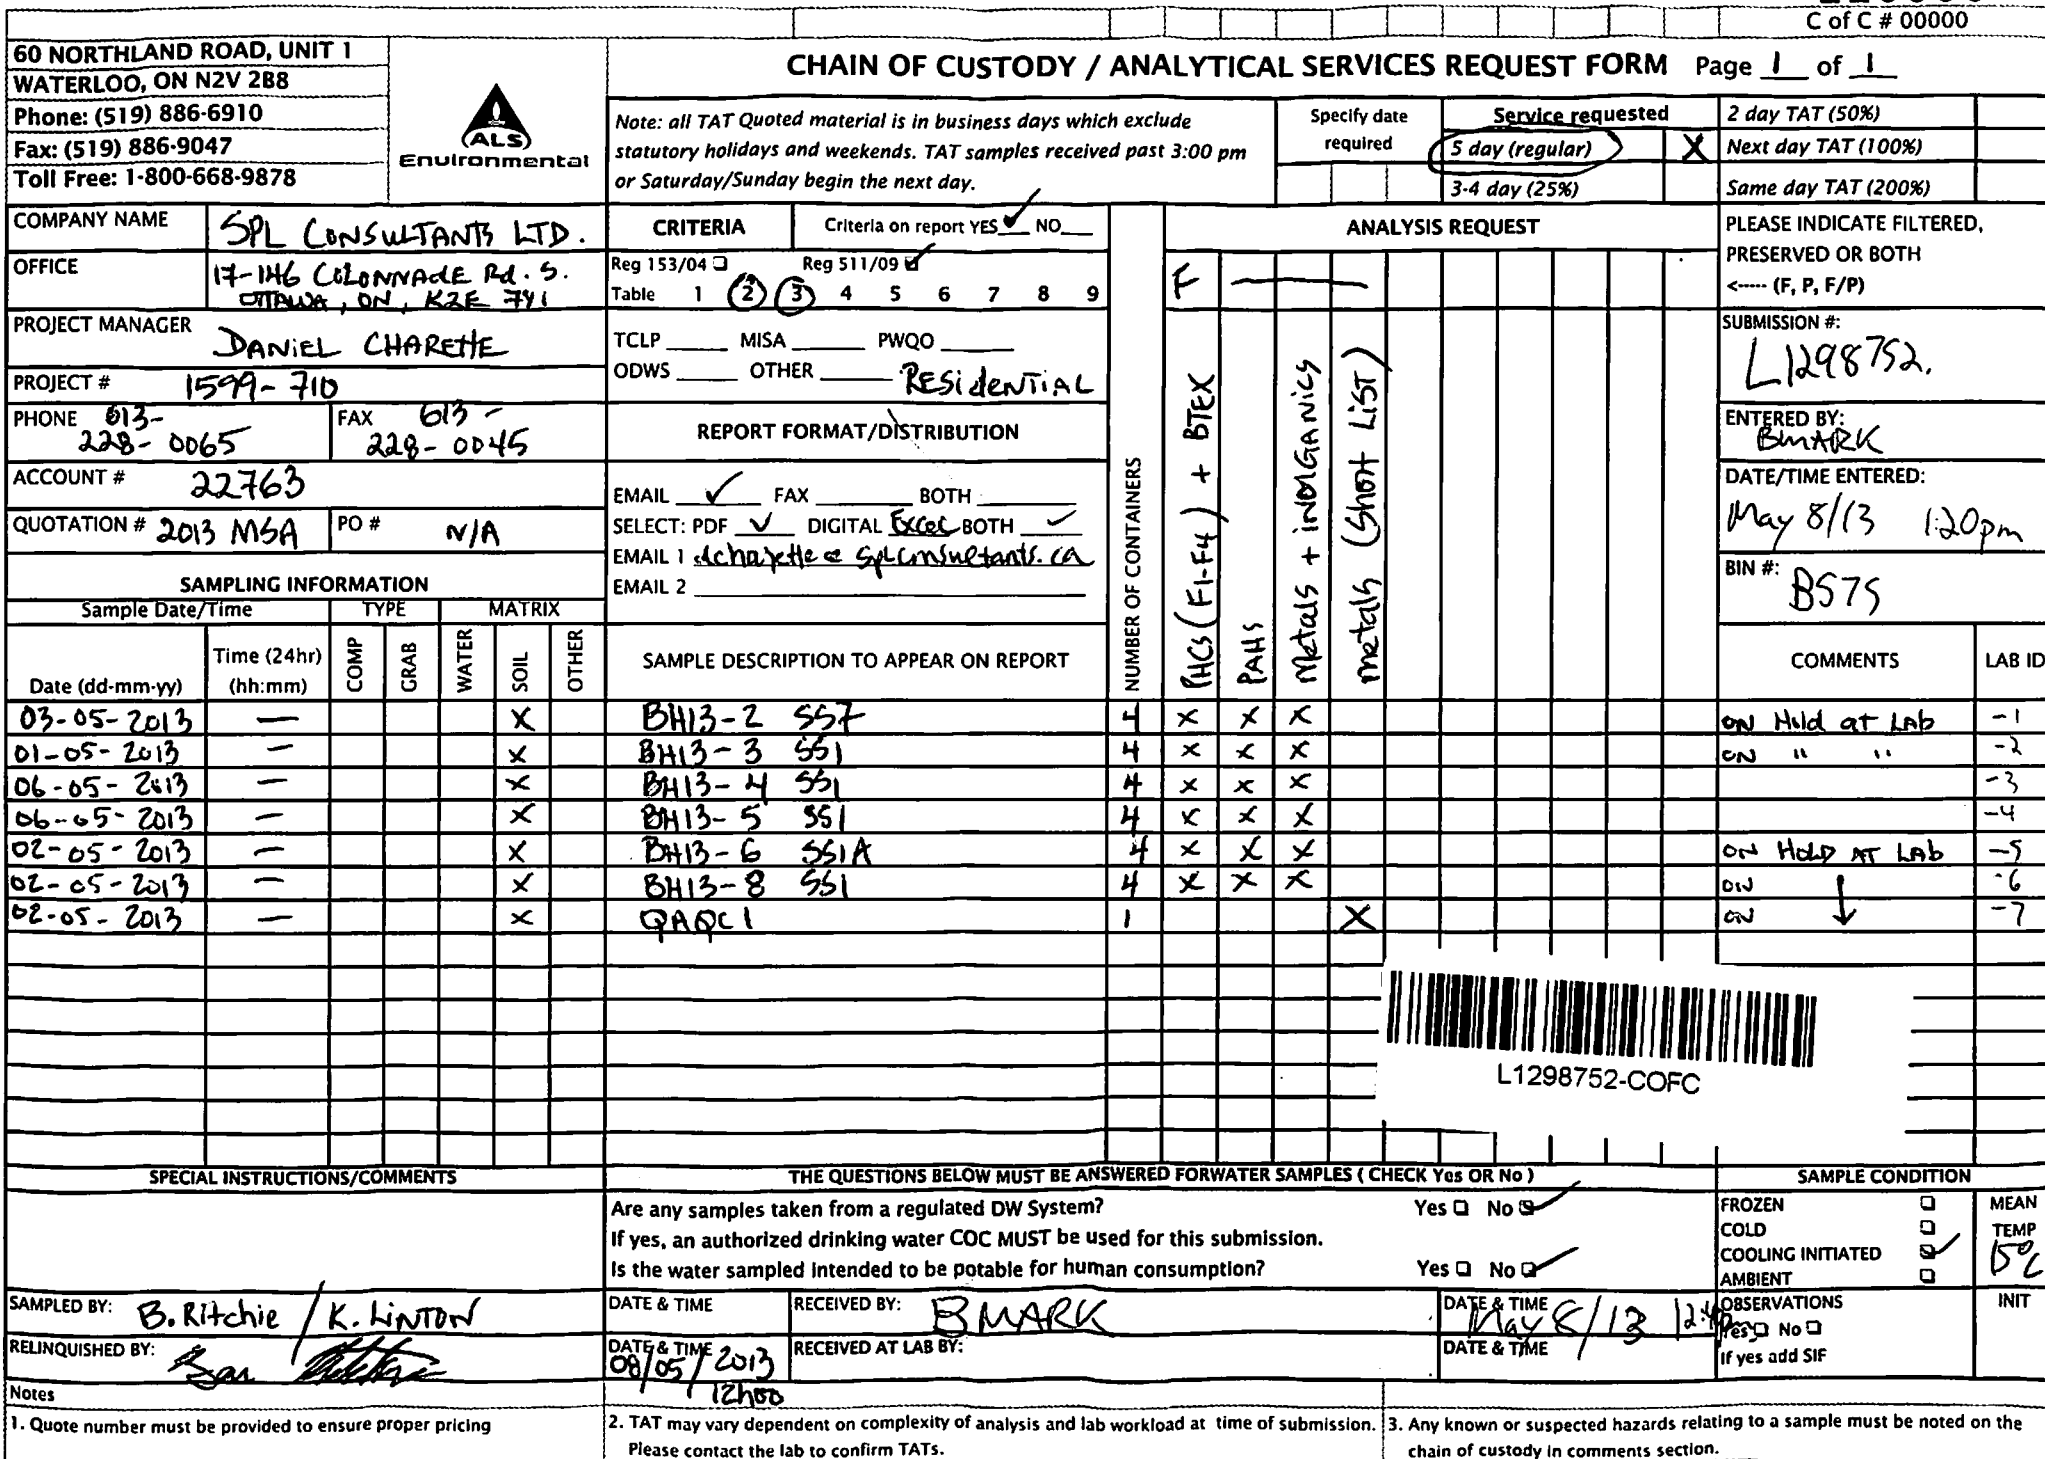 C of C # 00000
60 NORTHLAND ROAD, UNIT 1
WATERLOO, ON N2V 2B8
Phone: (519) 886-6910
Fax: (519) 886-9047
Toll Free: 1-800-668-9878
ALS
Environmental
CHAIN OF CUSTODY / ANALYTICAL SERVICES REQUEST FORM Page 1 of 1
Note: all TAT Quoted material is in business days which exclude
statutory holidays and weekends. TAT samples received past 3:00 pm
or Saturday/Sunday begin the next day.
Specify date
required
Service requested
5 day (regular) X
3-4 day (25%)
2 day TAT (50%)
Next day TAT (100%)
Same day TAT (200%)
COMPANY NAME SPL CONSULTANTS LTD.
OFFICE 17-146 COLONNADE Rd. S.
OTTAWA, ON, K2E 7Y1
PROJECT MANAGER DANIEL CHARETTE
PROJECT # 1599-710
PHONE 613-
228-0065
FAX 613-
228-0045
ACCOUNT # 22763
QUOTATION # 2013 MSA PO # N/A
CRITERIA Criteria on report YES ✓ NO
Reg 153/04 ☐ Reg 511/09 ☑
Table 1 2 3 4 5 6 7 8 9
TCLP MISA PWQO
ODWS OTHER RESIDENTIAL
REPORT FORMAT/DISTRIBUTION
EMAIL ✓ FAX BOTH
SELECT: PDF ✓ DIGITAL Excel BOTH ✓
EMAIL 1 dcharette@splconsultants.ca
EMAIL 2
NUMBER OF CONTAINERS
ANALYSIS REQUEST
F
PHCs (F1-F4) + BTEX
PAHs
Metals + inORGanics
metals (Short LiST)
PLEASE INDICATE FILTERED,
PRESERVED OR BOTH
<----- (F, P, F/P)
SUBMISSION #:
L1298752.
ENTERED BY:
BMARK
DATE/TIME ENTERED:
May 8/13 1:20pm
BIN #:
B575
SAMPLING INFORMATION
Sample Date/Time TYPE MATRIX
Date (dd-mm-yy) Time (24hr) (hh:mm) COMP GRAB WATER SOIL OTHER SAMPLE DESCRIPTION TO APPEAR ON REPORT COMMENTS LAB ID
03-05-2013 — X BH13-2 SS7 4 X X X ON Hold at LAb -1
01-05-2013 — X BH13-3 SS1 4 X X X ON " " -2
06-05-2013 — X BH13-4 SS1 4 X X X -3
06-05-2013 — X BH13-5 SS1 4 X X X -4
02-05-2013 — X BH13-6 SS1A 4 X X X ON HOLD AT LAb -5
02-05-2013 — X BH13-8 SS1 4 X X X ON ↓ -6
02-05-2013 — X QAQC1 1 X ON -7
L1298752-COFC
SPECIAL INSTRUCTIONS/COMMENTS
THE QUESTIONS BELOW MUST BE ANSWERED FORWATER SAMPLES ( CHECK Yes OR No )
Are any samples taken from a regulated DW System? Yes ☐ No ☑
If yes, an authorized drinking water COC MUST be used for this submission.
Is the water sampled intended to be potable for human consumption? Yes ☐ No ☑
SAMPLE CONDITION
FROZEN ☐
COLD ☐
COOLING INITIATED ☑
AMBIENT ☐
MEAN
TEMP
15°C
SAMPLED BY: B. Ritchie / K. LINTON
DATE & TIME
RECEIVED BY: BMARK
DATE & TIME May 8/13
OBSERVATIONS INIT
Yes ☐ No ☐
If yes add SIF
RELINQUISHED BY:
DATE & TIME 08/05/2013
12h00
RECEIVED AT LAB BY:
DATE & TIME
Notes
1. Quote number must be provided to ensure proper pricing
2. TAT may vary dependent on complexity of analysis and lab workload at time of submission.
Please contact the lab to confirm TATs.
3. Any known or suspected hazards relating to a sample must be noted on the
chain of custody in comments section.